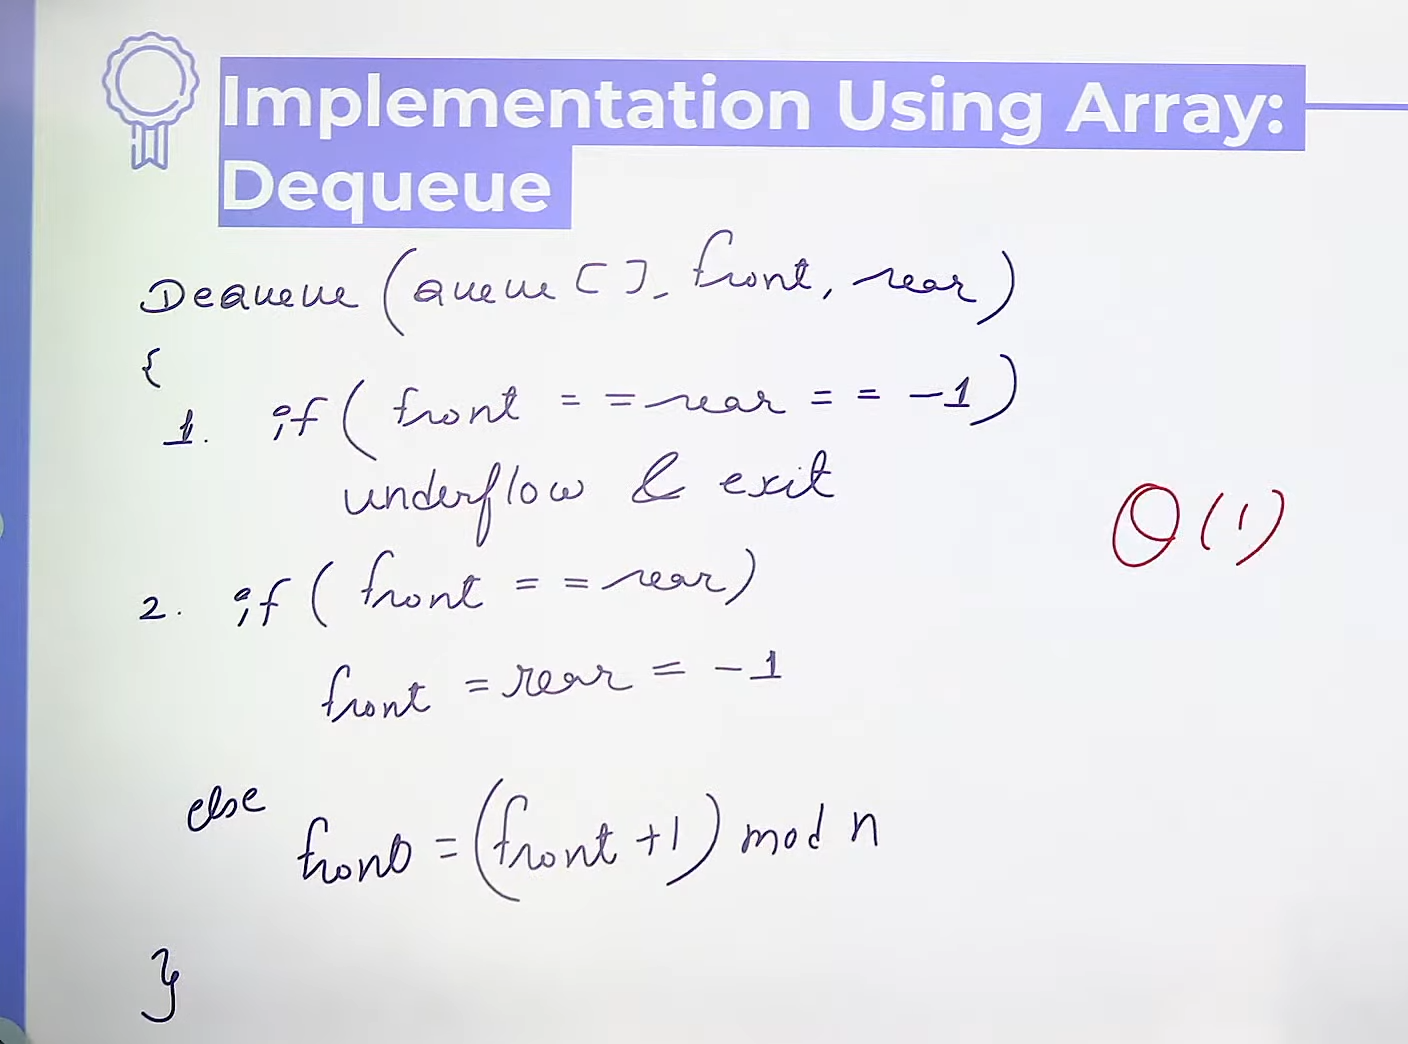 Implementation Using Array:
Dequeue
Dequeue (queue [], front, rear)
{
1. if ( front == rear == -1)
underflow & exit
θ(1)
2. if ( front == rear)
front = rear = -1
else
front = (front +1) mod n
}